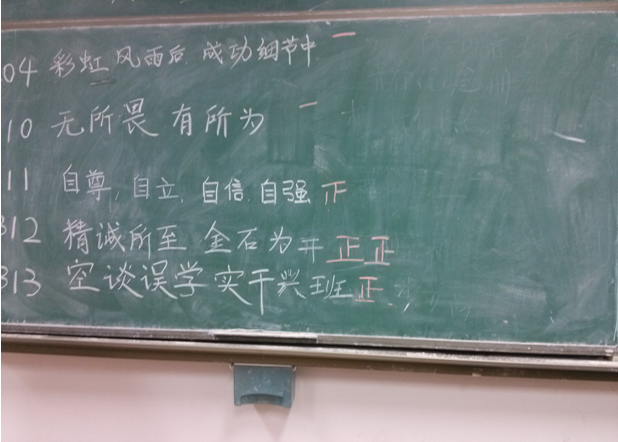 04 彩虹风雨后 成功细节中 一
10 无所畏 有所为 一
11 自尊,自立,自信,自强 正
312 精诚所至 金石为开 正正
313 空谈误学 实干兴班 正